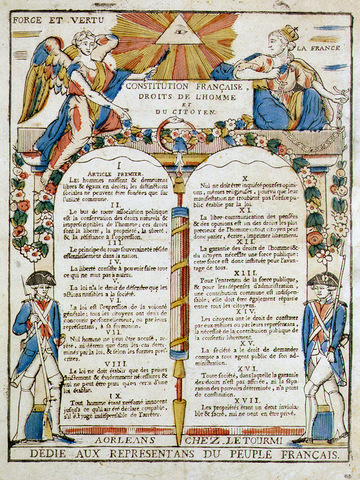 FORCE ET VERTU
LA FRANCE
CONSTITUTION FRANÇAISE,
DROITS DE L'HOMME
ET
DU CITOYEN.
I
ARTICLE PREMIER.
Les hommes naissent & demeurent
libres & égaux en droits; les distinctions
sociales ne peuvent être fondées que sur
l'utilité commune.
II.
Le but de toute association politique
est la conservation des droits naturels &
imprescriptibles de l'homme; ces droits
sont la liberté, la propriété, la sûreté
& la résistance à l'oppression.
III.
Le principe de toute souveraineté réside
essentiellement dans la nation.
IV.
La liberté consiste à pouvoir faire tout
ce qui ne nuit pas à autrui.
V.
La loi n'a le droit de défendre que les
actions nuisibles à la société.
VI.
La loi est l'expression de la volonté
générale; tous les citoyens ont droit de
concourir personnellement, ou par leurs
représentans, à sa formation.
VII.
Nul homme ne peut être accusé,
ni détenu que dans les cas déter-
minés par la loi, & selon les formes
prescrites.
VIII.
La loi ne doit établir que des peines
strictement & évidemment nécessaires &
nul ne peut être puni qu'en vertu d'une
loi établie.
IX.
Tout homme étant présumé innocent
jusqu'à ce qu'il ait été déclaré coupable,
s'il est jugé indispensable de l'arrêter.
X.
Nul ne doit être inquiété pour ses opinions,
mêmes religieuses, pourvu que leur
manifestation ne troublent pas l'ordre pu-
blic établi par la loi.
XI.
La libre communication des pensées
& des opinions est un des droits les plus
précieux de l'homme: tout citoyen peut
donc parler, écrire, imprimer librement.
XII.
La garantie des droits de l'homme & du
citoyen nécessite une force publique:
cette force est donc instituée pour l'avan-
tage de tous.
XIII.
Pour l'entretien de la force publique,
& pour les dépenses d'administration,
une contribution commune est indispen-
sable; elle doit être également répartie
entre tous les citoyens.
XIV.
Les citoyens ont le droit de constater
par eux mêmes ou par leurs représentans,
la nécessité de la contribution publique de
la consentir librement.
XV.
La société a le droit de demander
compte à tout agent public de son ad-
ministration.
XVI.
Toute société, dans laquelle la garantie
des droits n'est pas assurée, ni la sépa-
ration des pouvoirs déterminée, n'a point
de constitution.
XVII.
Les propriétés étant un droit inviola-
ble & sacré, nul ne peut en être privé.
A ORLEANS CHEZ LETOURMI
DÉDIE AUX REPRESENTANS DU PEUPLE FRANÇAIS.